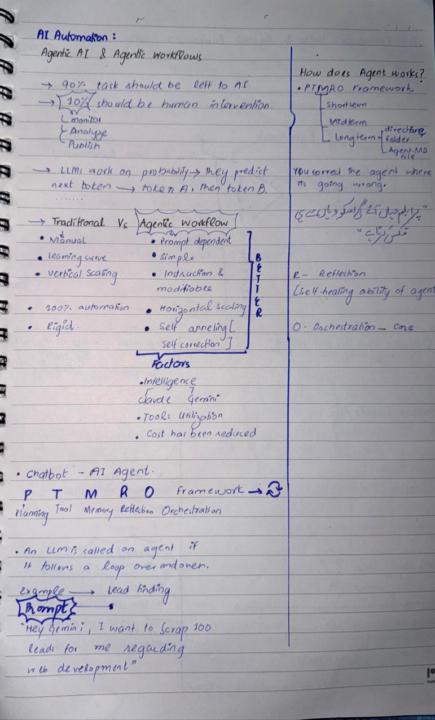 AI Automation:
Agentic AI & Agentic Workflows
→ 90% task should be left to AI
→ 10% should be human intervention.
monitor
Analyze
Publish
→ LLMs work on probability → they predict
next token → token A, then token B
→ Traditional Vs Agentic workflow
• Manual
• learning curve
• vertical scaling
• 100% automation
• Rigid.
• Prompt dependent
• Simple
• Instruction &
modifiable
• Horizontal scaling
• Self anneling [
self correction]
BETTER
Factors
• Intelligence
Claude Gemini
• Tools Utilization
• Cost has been reduced
• Chatbot - AI Agent.
P T M R O Framework →
Planning Tool Memory Reflection Orchestration
• An LLM is called an agent if
it follows a loop over and over.
Example → Lead finding
Prompt
"Hey Gemini, I want to scrap 100
leads for me regarding
web development"
How does Agent works?
• PTMRO Framework
Shortterm
Midterm
Longterm
directive
folder
Agent.MD
file
You correct the agent where
its going wrong.
R - Reflection
[Self-healing ability of agent
O - Orchestration - Core